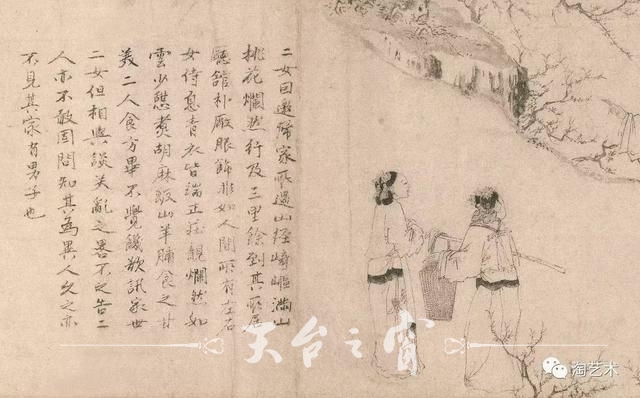 二女因邀歸家所過山徑崎嶇滿山
桃花爛然行及三里餘到其所居
廳館朴厰服飾非如人間所有左右
女侍息青衣皆端正莊靚爛然如
雲少憩煮胡麻飯山羊脯食之甘
美二人食方畢不覺饑欲訊家世
二女但相與談笑亂之畧不之告二
人亦不敢固問知其為異人久之亦
不見其家有男子也
天台之窗
淘艺术